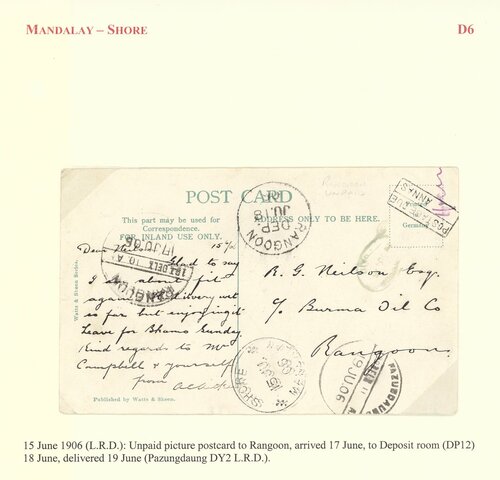 MANDALAY – SHORE
D6
POST CARD
This part may be used for
Correspondence.
FOR INLAND USE ONLY.
ADDRESS ONLY TO BE HERE.
RANGOON
DEP.
JU.18
POSTAGE DUE
ANNAS
Germany
15/6
Glad to say
I am about fit
again. Delivery wet
so far but enjoying it
Leave for Bhamo Sunday
Kind regards to Mr
Campbell & yourself
from
R. G. Neilson Esq.
c/o Burma Oil Co
Rangoon
17 JU 06
RANGOON
MANDALAY
SHORE
15 JU
06
PAZUNDAUNG
19 JU 06
Watts & Skeen Series.
Published by Watts & Skeen.
15 June 1906 (L.R.D.): Unpaid picture postcard to Rangoon, arrived 17 June, to Deposit room (DP12)
18 June, delivered 19 June (Pazungdaung DY2 L.R.D.).